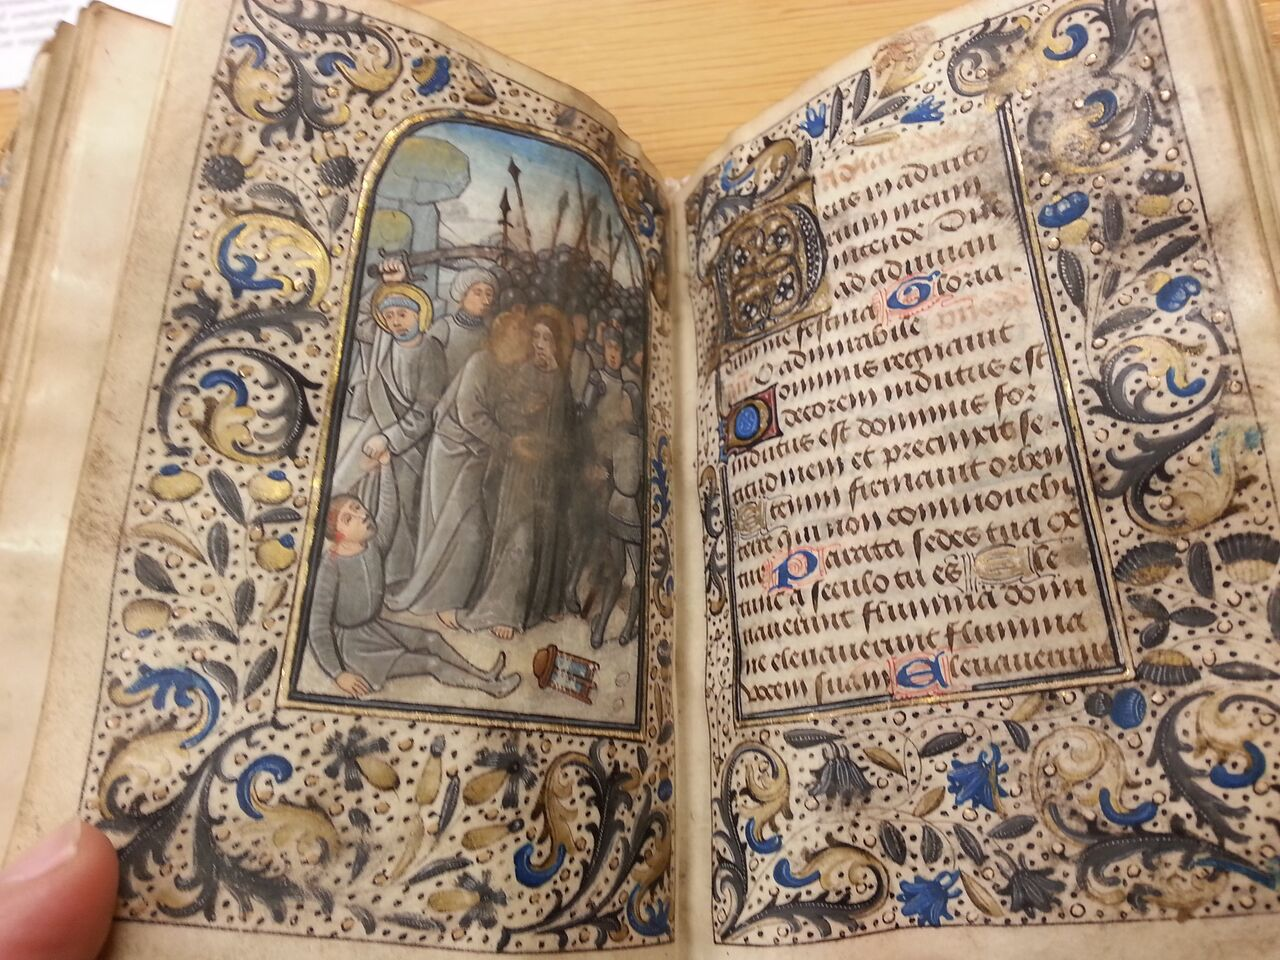 Deus in adiuto
rium meum
intende Dne
ad adiuvan
dum me festina Gloria
O admirabile
Dominus regnavit
decorem indutus est
indutus est dominus for
titudinem et precinxit se.
Etenim firmavit orbem
terre qui non commovebi
tur Parata sedes tua ex
tunc a seculo tu es Ele
vaverunt flumina domi
ne elevaverunt flumina
vocem suam Elevaverunt